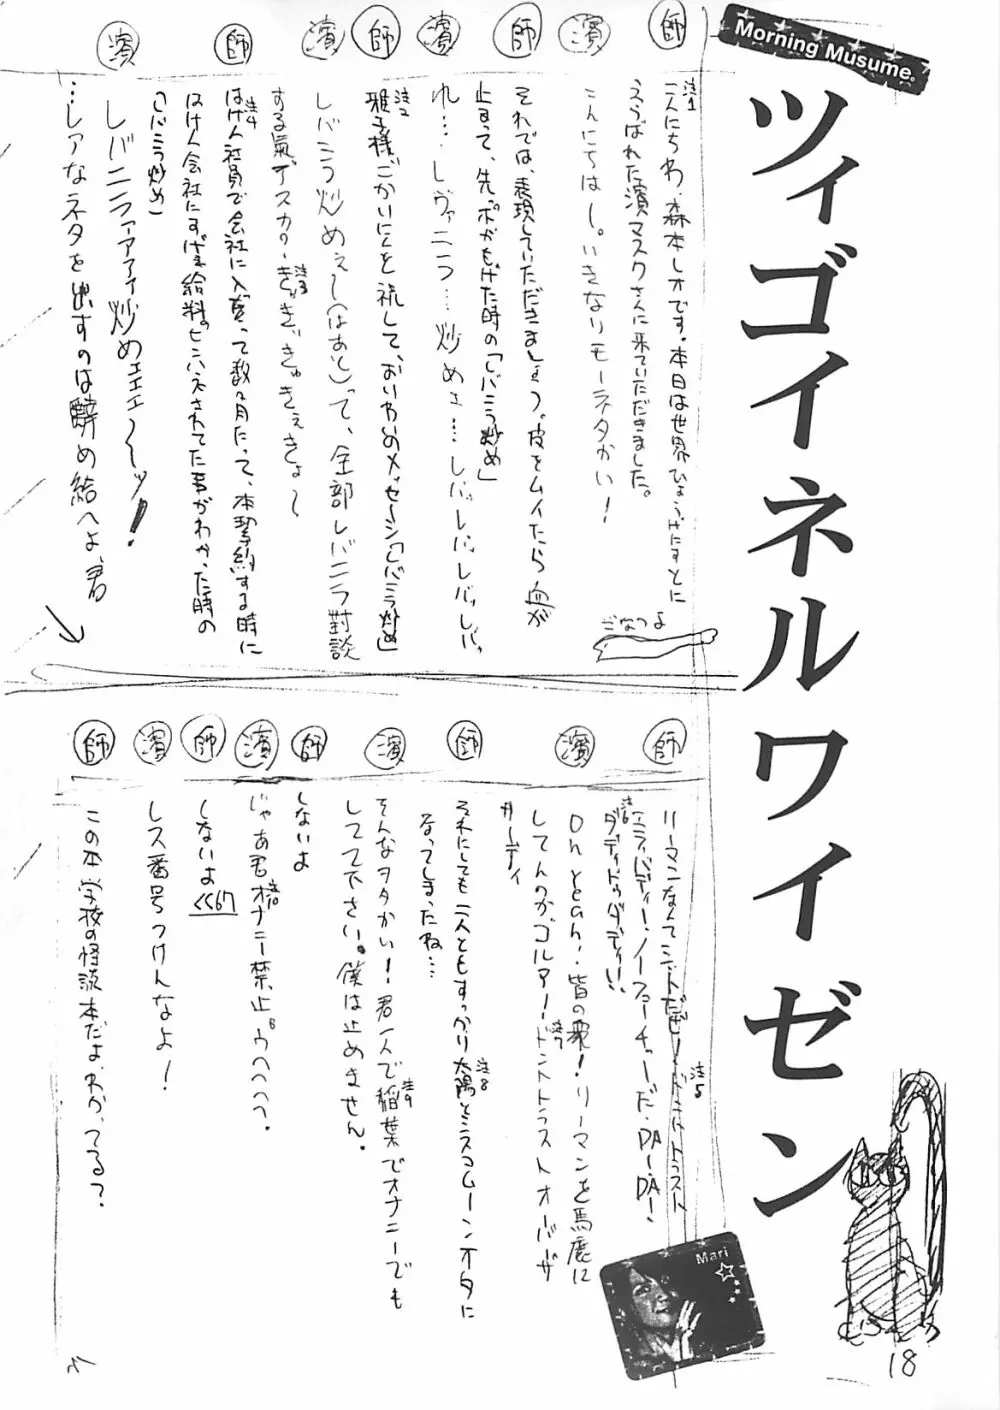 Morning Musume。
ツィゴイネルワイゼン
師
こんにちわ、森本レオです。本日は世界ひょうぎにすとに
注1
えらばれた濱マスクさんに来ていただきました。
濱
こんにちはー。いきなりモーネタかい!
師
それでは、表現していただきましょう。皮をムイたら血が
止まって、先ッポがもげた時の「レバニラ炒め」
濱
れ…レヴァニラ…炒めェ…レバッレバッレバッレバッ
師
注2
雅子様ごかいにんを祝して、おいわいのメッセージ「レバニラ炒め」
濱
レバニラ炒めぇ〜(はぁと)って、全部レバニラ對談
する氣デスカのーきゃきぃきゅきぇきょ〜
注3
師
注4
はけん社員で会社に入って数ヶ月たって、本契約する時に
はけん会社にすげぇ給料のピンハネされてた事がわかった時の
「レバニラ炒め」
濱
レバニラァァァァ炒めェェェ〜〜ッ!
…レアなネタを出すのは辭め給へよ、君
師
リーマンなんてシットだぜ!ドントトラスト
注5
注6
エニィバディー!ノーフューチャーだ、DA!DA!
ダディドゥダディ!!
濱
Oh yeah!皆の衆!リーマンを馬鹿に
してんのかゴルアードントトラストオーバーサ
注7
サーティ
師
それにしても二人ともすっかり太陽とシスコムーンオタに
注8
なってしまったね…
濱
そんなヲタかい!君一人で稲葉でオナニーでも
注9
してて下さい。僕は止めません。
師
しないよ
濱
じゃあ君オナニー禁止ヴへへへへ。
注10
師
しないよ <<67
濱
レス番号つけんなよ!
師
この本学校の怪談本だよ、わかってる?
Mari
18